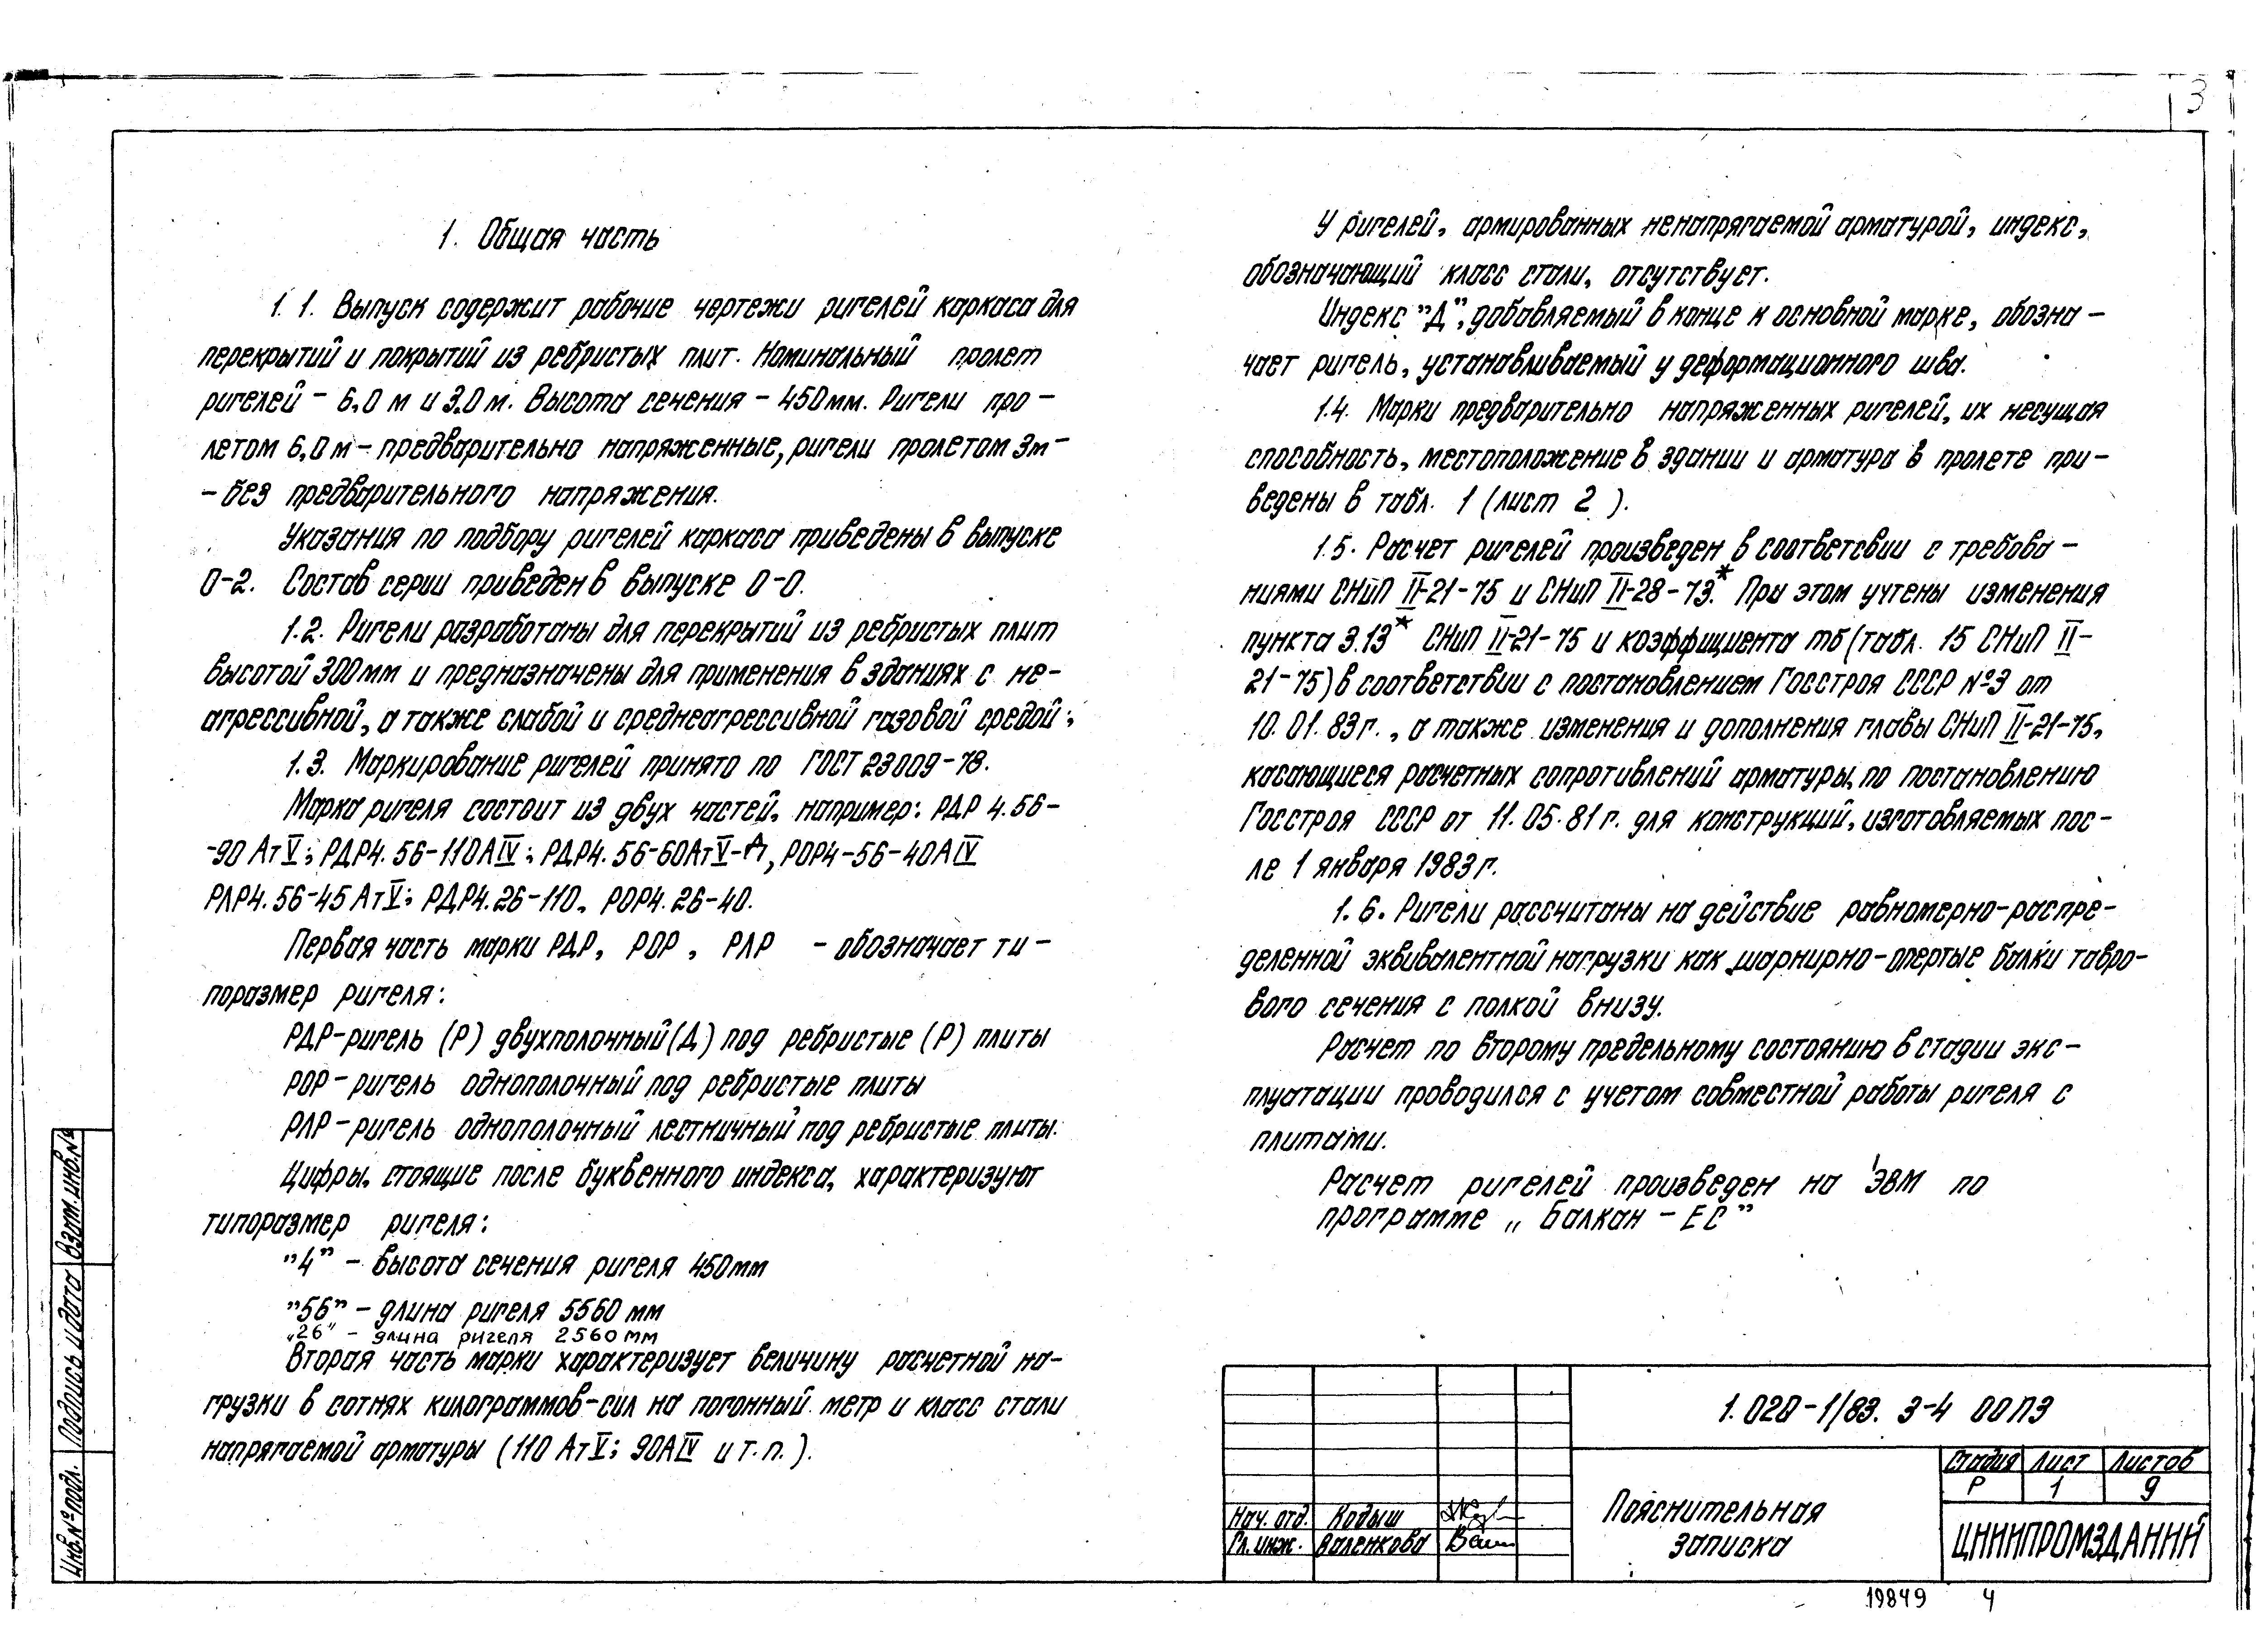 3
1. Общая часть
1.1. Выпуск содержит рабочие чертежи ригелей каркаса для
перекрытий и покрытий из ребристых плит. Номинальный пролет
ригелей – 6,0 м и 3,0 м. Высота сечения – 450мм. Ригели про–
летом 6,0 м – предварительно напряженные, ригели пролетом 3м–
– без предварительного напряжения.
Указания по подбору ригелей каркаса приведены в выпуске
0-2. Состав серии приведен в выпуске 0-0.
1.2. Ригели разработаны для перекрытий из ребристых плит
высотой 300мм и предназначены для применения в зданиях с не–
агрессивной, а также слабой и среднеагрессивной газовой средой.
1.3. Маркирование ригелей принято по ГОСТ 23009-78.
Марка ригеля состоит из двух частей, например: РДР 4.56–
-90 АтV; РДР4.56-110АIV; РДР4.56-60АтV-Д, РОР4-56-40АIV
РЛР4.56-45 АтV; РДР4.26-110, РОР4.26-40.
Первая часть марки РДР, РОР, РЛР – обозначает ти–
поразмер ригеля:
РДР–ригель (Р) двухполочный (Д) под ребристые (Р) плиты
РОР – ригель однополочный под ребристые плиты
РЛР – ригель однополочный лестничный под ребристые плиты.
Цифры, стоящие после буквенного индекса, характеризуют
типоразмер ригеля:
"4" – высота сечения ригеля 450мм
"56" – длина ригеля 5560 мм
„26" – длина ригеля 2560 мм
Вторая часть марки характеризует величину расчетной на–
грузки в сотнях килограммов-сил на погонный метр и класс стали
напрягаемой арматуры (110 АтV; 90АIV и т.п.).
У ригелей, армированных ненапрягаемой арматурой, индекс,
обозначающий класс стали, отсутствует.
Индекс "Д", добавляемый в конце к основной марке, обозна –
чает ригель, устанавливаемый у деформационного шва.
1.4. Марки предварительно напряженных ригелей, их несущая
способность, местоположение в здании и арматура в пролете при–
ведены в табл. 1 (лист 2 ).
1.5. Расчет ригелей произведен в соответсвии с требова –
ниями СНиП II-21-75 и СНиП II-28-73.* При этом учтены изменения
пункта 3.13* СНиП II-21-75 и коэффициента mб (табл. 15 СНиП II–
21-75) в соответствии с постановлением Госстроя СССР №3 от
10.01.83г., а также изменения и дополнения главы СНиП II-21-75,
касающиеся расчетных сопротивлений арматуры, по постановлению
Госстроя СССР от 11.05.81г. для конструкций, изготовляемых пос–
ле 1 января 1983г.
1.6. Ригели рассчитаны на действие равномерно-распре–
деленной эквивалентной нагрузки как шарнирно-опертые балки тавро–
вого сечения с полкой внизу.
Расчет по второму предельному состоянию в стадии экс–
плуатации проводился с учетом совместной работы ригеля с
плитами.
Расчет ригелей произведен на ЭВМ по
программе „Балкан – ЕС"
Взам. инв. №
Подпись и дата
Инв. № подл.
1.020-1/83. 3-4 00ПЗ
Стадия Лист Листов
Р 1 9
Нач. отд. Кодыш
Гл. инж. Валенкова
Пояснительная
записка
ЦНИИПРОМЗДАНИЙ
19849 4